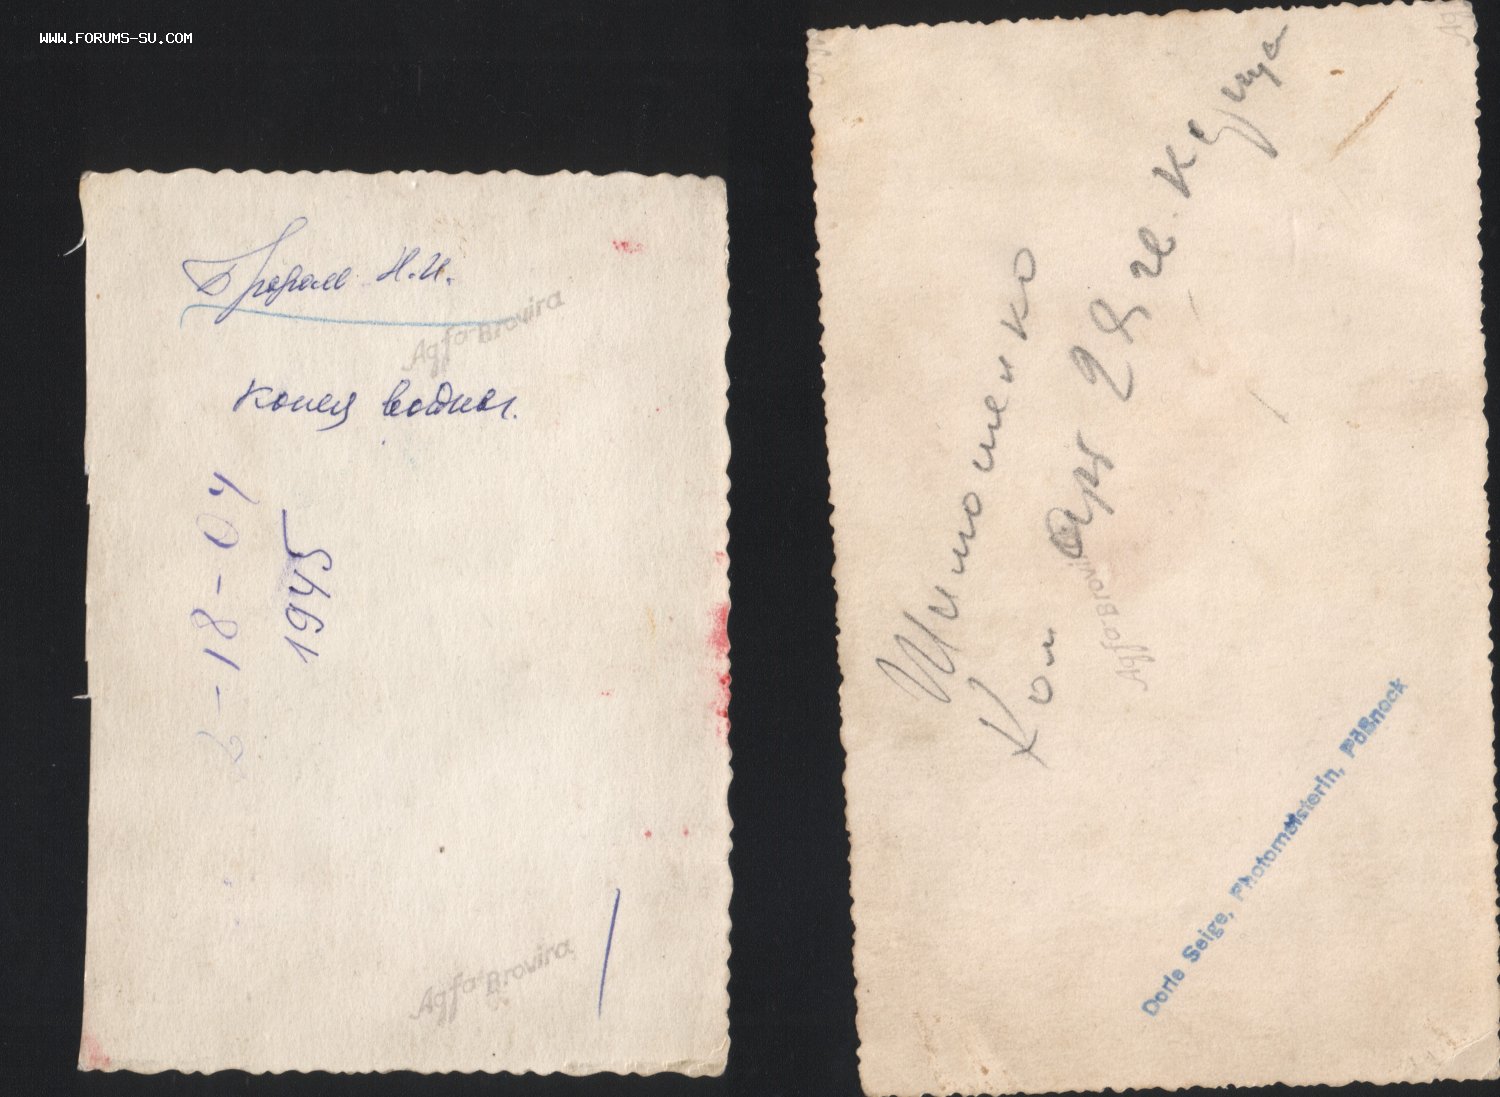 WWW.FORUMS-SU.COM
Н.И.
Agfa-Brovira
конец войны.
2-18-04
1945
Agfa-Brovira
Тимошенко
Ком арт 28 гв.
Agfa-Brovi
Dorle Seige, Photomeisterin, Pößneck